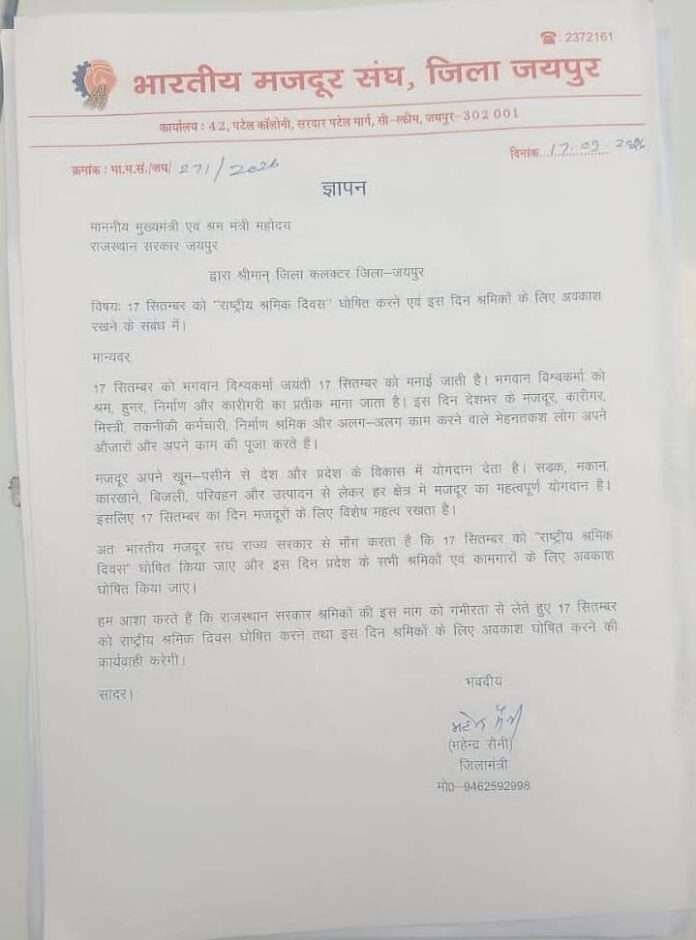 ☎: 2372161
भारतीय मजदूर संघ, जिला जयपुर
कार्यालय : 42, पटेल कॉलोनी, सरदार पटेल मार्ग, सी-स्कीम, जयपुर-302 001
क्रमांक : भा.म.सं./जय/ 271/2026
दिनांक 17.09.2026
ज्ञापन
माननीय मुख्यमंत्री एवं श्रम मंत्री महोदय
राजस्थान सरकार जयपुर
द्वारा श्रीमान् जिला कलक्टर जिला–जयपुर
विषयः 17 सितम्बर को "राष्ट्रीय श्रमिक दिवस" घोषित करने एवं इस दिन श्रमिकों के लिए अवकाश
रखने के संबंध में।
मान्यवर,
17 सितम्बर को भगवान विश्वकर्मा जयंती 17 सितम्बर को मनाई जाती है। भगवान विश्वकर्मा को
श्रम, हुनर, निर्माण और कारीगरी का प्रतीक माना जाता है। इस दिन देशभर के मजदूर, कारीगर,
मिस्त्री, तकनीकी कर्मचारी, निर्माण श्रमिक और अलग–अलग काम करने वाले मेहनतकश लोग अपने
औजारों और अपने काम की पूजा करते हैं।
मजदूर अपने खून–पसीने से देश और प्रदेश के विकास में योगदान देता है। सड़क, मकान,
कारखाने, बिजली, परिवहन और उत्पादन से लेकर हर क्षेत्र में मजदूर का महत्वपूर्ण योगदान है।
इसलिए 17 सितम्बर का दिन मजदूरों के लिए विशेष महत्व रखता है।
अतः भारतीय मजदूर संघ राज्य सरकार से माँग करता है कि 17 सितम्बर को "राष्ट्रीय श्रमिक
दिवस" घोषित किया जाए और इस दिन प्रदेश के सभी श्रमिकों एवं कामगारों के लिए अवकाश
घोषित किया जाए।
हम आशा करते हैं कि राजस्थान सरकार श्रमिकों की इस मांग को गंभीरता से लेते हुए 17 सितम्बर
को राष्ट्रीय श्रमिक दिवस घोषित करने तथा इस दिन श्रमिकों के लिए अवकाश घोषित करने की
कार्यवाही करेगी।
सादर।
भवदीय
(महेन्द्र सैनी)
जिलामंत्री
मो0–9462592998